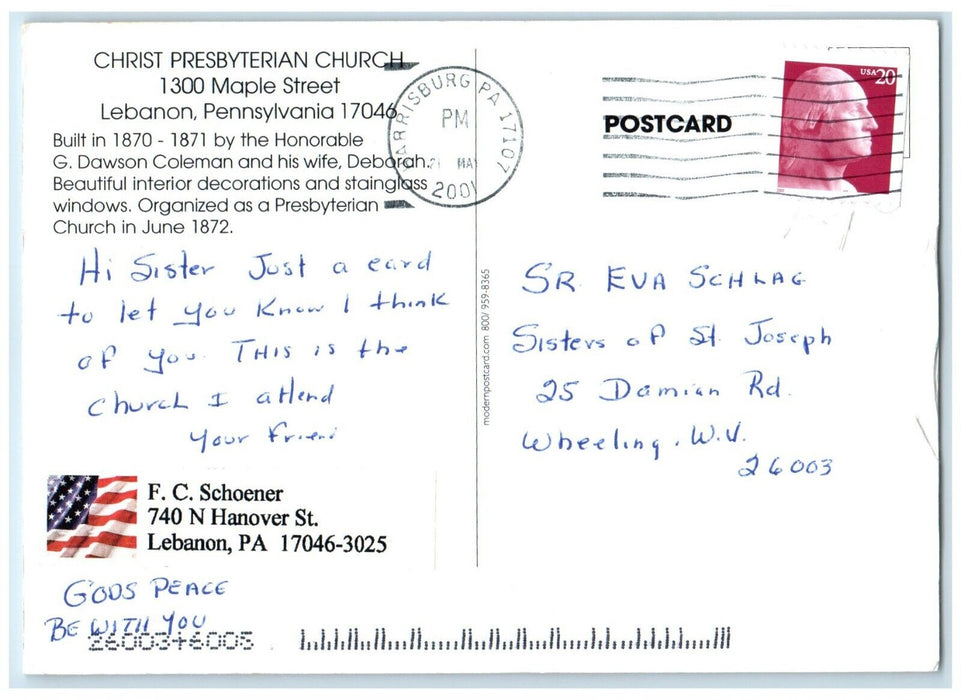 CHRIST PRESBYTERIAN CHURCH
1300 Maple Street
Lebanon, Pennsylvania 17046
Built in 1870 - 1871 by the Honorable
G. Dawson Coleman and his wife, Deborah.
Beautiful interior decorations and stainglass
windows. Organized as a Presbyterian
Church in June 1872.
Hi Sister Just a card
to let you Know I think
of you. THIS is the
church I attend
your friend
F. C. Schoener
740 N Hanover St.
Lebanon, PA 17046-3025
GODS PEACE
BE WITH YOU
26003+6005
modernpostcard.com 800/ 959-8365
HARRISBURG PA 17107
PM
MAY
2001
POSTCARD
USA20
SR. EVA SCHLAG
Sisters of St. Joseph
25 Damian Rd.
Wheeling, W.V.
26003